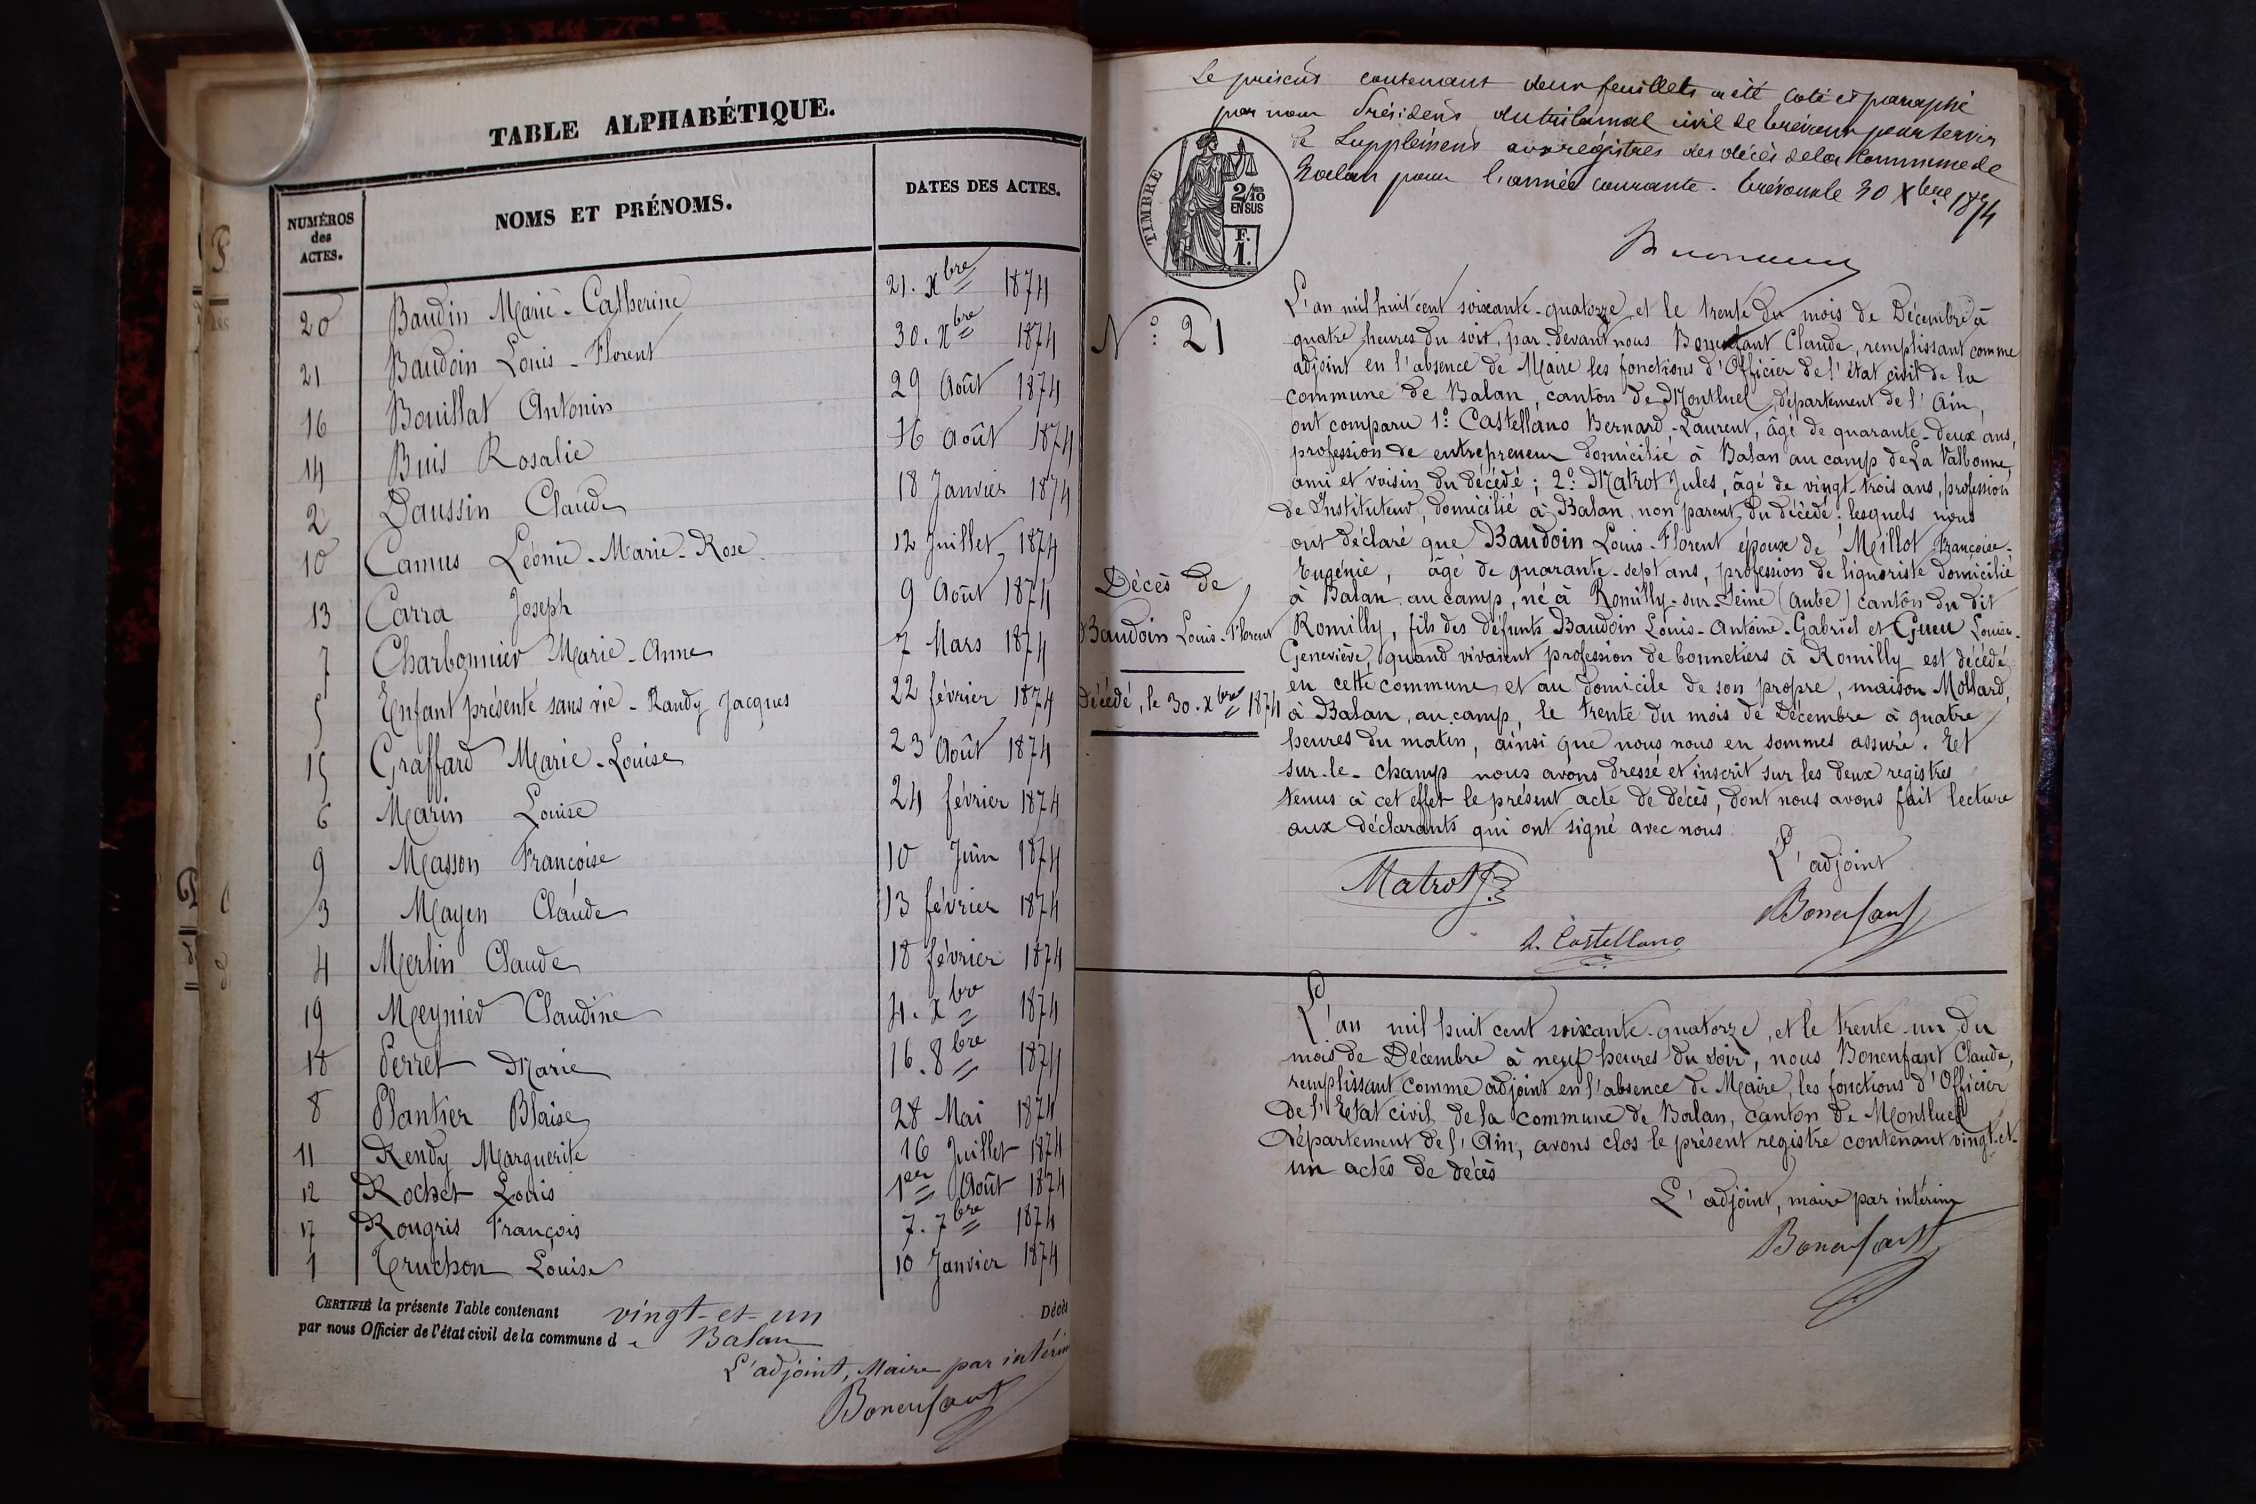 TABLE ALPHABÉTIQUE.
NUMÉROS des ACTES. NOMS ET PRÉNOMS. DATES DES ACTES.
20 Baudin Marie-Catherine 21. Xbre 1874
21 Baudoin Louis-Florent 30. Xbre 1874
16 Bouillat Antonin 29 Août 1874
14 Buis Rosalie 16 Août 1874
2 Daussin Claude 18 Janvier 1874
10 Camus Léonie-Marie-Rose 12 Juillet 1874
13 Carra Joseph 9 Août 1874
7 Charbonnier Marie-Anne 7 Mars 1874
5 Enfant présenté sans vie - Randy Jacques 22 février 1874
15 Graffard Marie-Louise 23 Août 1874
6 Marin Louise 24 février 1874
9 Masson Francoise 10 Juin 1874
3 Mayen Claude 13 février 1874
4 Merlin Claude 18 février 1874
19 Meynier Claudine 4. Xbre 1874
18 Perret Marie 16. 8bre 1874
8 Plantier Blaise 28 Mai 1874
11 Rendy Marguerite 16 Juillet 1874
12 Rochet Louis 1er Août 1874
17 Rougris François 7. 7bre 1874
1 Truchon Louise 10 Janvier 1874
CERTIFIÉ la présente Table contenant vingt-et-un Décès
par nous Officier de l'état civil de la commune de Balan
L'adjoint, Maire par intérim
Bonenfant
Le présent contenant deux feuillets a été coté et paraphé
par nous Président du tribunal civil de Trévoux pour servir
de Supplément aux régistres des décès de la Commune de
Balan pour l'année courante. Trévoux le 30 Xbre 1874
TIMBRE
2/10 EN SUS
F. 1.
N° 21
L'an mil huit cent soixante-quatorze et le trente du mois de Décembre à
quatre heures du soir, par-devant nous Bonenfant Claude, remplissant comme
adjoint en l'absence de Maire les fonctions d'Officier de l'état civil de la
commune de Balan, canton de Montluel, département de l'Ain,
ont comparu 1° Castellano Bernard-Laurent, âgé de quarante-deux ans,
profession de entrepreneur domicilié à Balan au camp de La Valbonne,
ami et voisin du décédé; 2° Matrot Jules, âgé de vingt-trois ans, profession
de Instituteur, domicilié à Balan, non parent du décédé; lesquels nous
ont déclaré que Baudoin Louis-Florent époux de Meillot Françoise-
Eugénie, âgé de quarante-sept ans, profession de liquoriste domicilié
à Balan au camp, né à Romilly-sur-Seine (Aube) canton du dit
Romilly, fils des défunts Baudoin Louis-Antoine-Gabriel et Gueu Louise-
Geneviève, quand vivaient profession de bonnetiers à Romilly est décédé
en cette commune et au domicile de son propre, maison Mollard,
à Balan, au camp, le trente du mois de Décembre à quatre
heures du matin, ainsi que nous nous en sommes assuré. Et
sur-le-champ nous avons dressé et inscrit sur les deux registres
tenus à cet effet le présent acte de décès, dont nous avons fait lecture
aux déclarants qui ont signé avec nous.
Décès de
Baudoin Louis-Florent
Décédé, le 30. Xbre 1874
L'adjoint
Matrot J.
Bonenfant
Castellano
L'an mil huit cent soixante-quatorze, et le trente-un du
mois de Décembre à neuf heures du soir, nous Bonenfant Claude,
remplissant comme adjoint en l'absence de Maire, les fonctions d'Officier
de l'Etat civil de la commune de Balan, canton de Montluel
département de l'Ain, avons clos le présent registre contenant vingt-et-
un actes de décès
L'adjoint, maire par intérim
Bonenfant